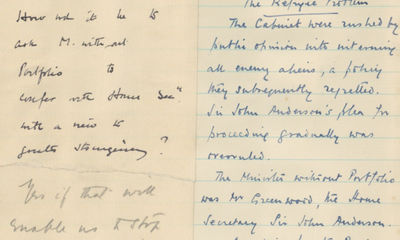 How wd it be to
ask M. without
Portfolio to
confer with Home Secy
with a view to
greater stringency?
Yes if that will
enable us to stop
The Refugee Problem
The Cabinet were rushed by
public opinion into interning
all enemy aliens, a policy
they subsequently regretted.
Sir John Anderson's plea for
proceeding gradually was
overruled.
The Minister without Portfolio
was Mr Greenwood, the Home
Secretary Sir John Anderson.